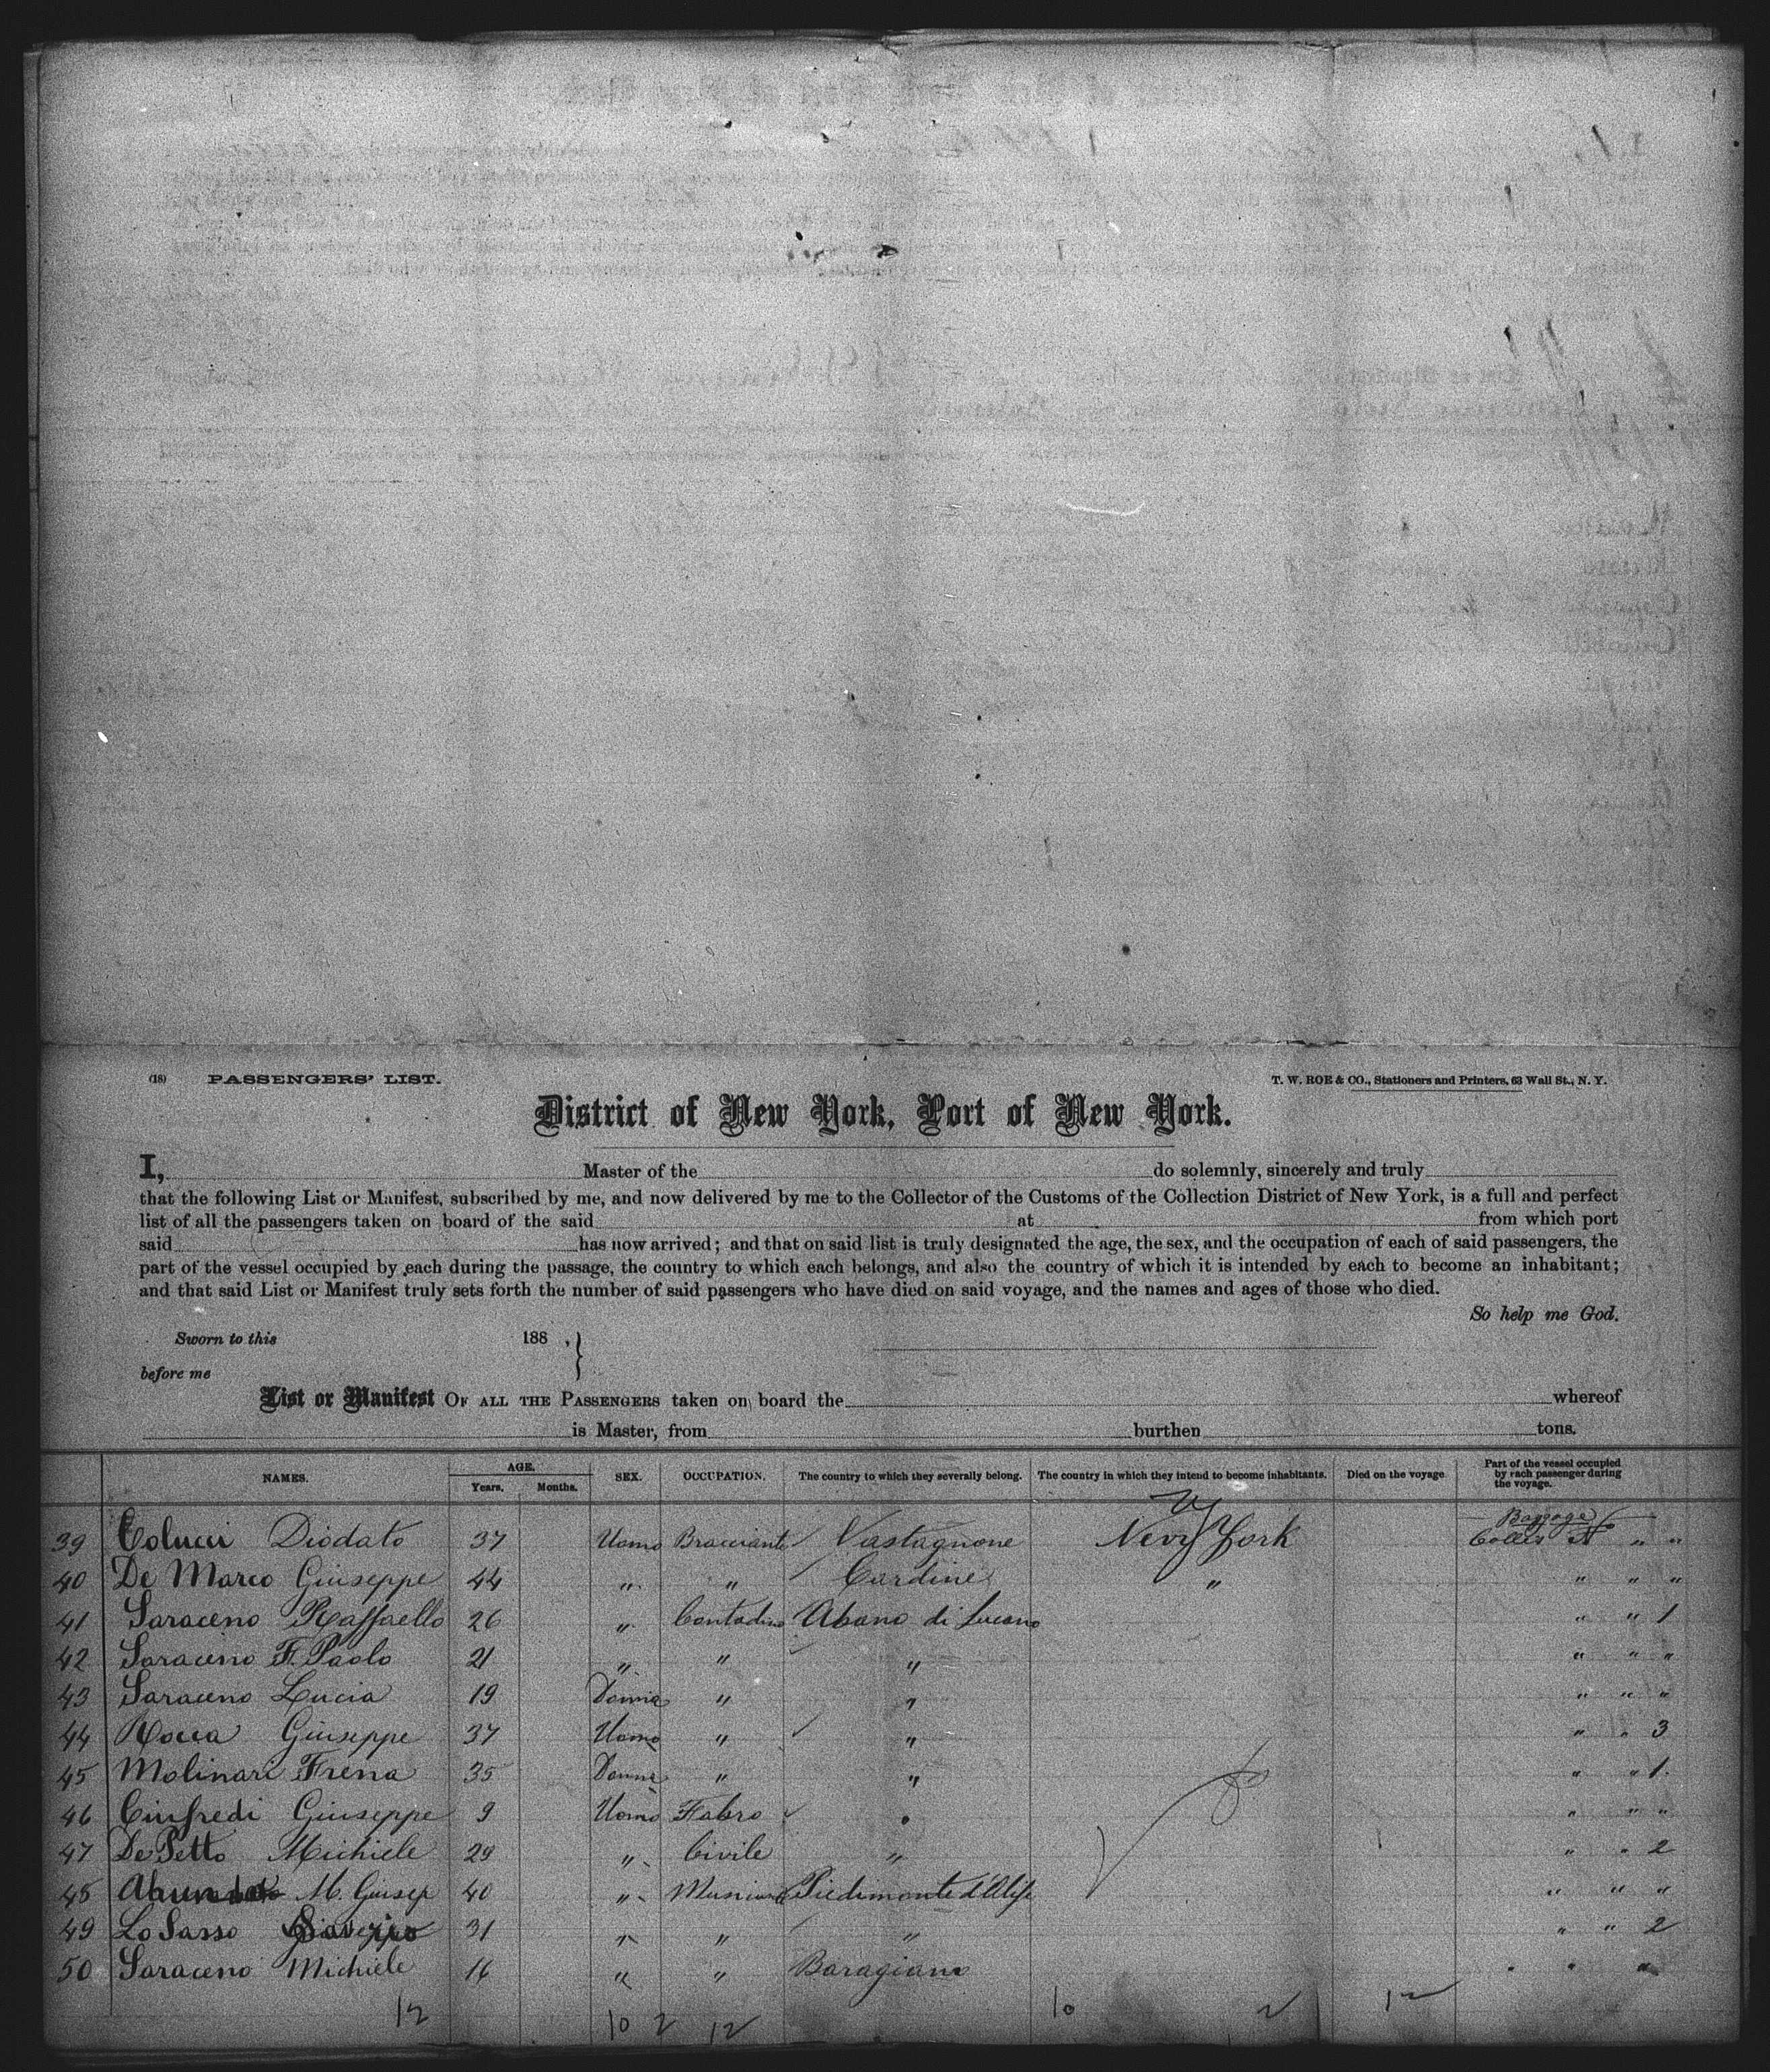 (18) PASSENGERS' LIST. T. W. ROE & CO., Stationers and Printers, 63 Wall St., N. Y.
District of New York, Port of New York.
I, Master of the do solemnly, sincerely and truly
that the following List or Manifest, subscribed by me, and now delivered by me to the Collector of the Customs of the Collection District of New York, is a full and perfect
list of all the passengers taken on board of the said at from which port
said has now arrived; and that on said list is truly designated the age, the sex, and the occupation of each of said passengers, the
part of the vessel occupied by each during the passage, the country to which each belongs, and also the country of which it is intended by each to become an inhabitant;
and that said List or Manifest truly sets forth the number of said passengers who have died on said voyage, and the names and ages of those who died.
So help me God.
Sworn to this 188 ,
before me
List or Manifest OF ALL THE PASSENGERS taken on board the whereof
is Master, from burthen tons.
NAMES. AGE. Years. Months. SEX. OCCUPATION. The country to which they severally belong. The country in which they intend to become inhabitants. Died on the voyage Part of the vessel occupied by each passenger during the voyage.
Baggage
39 Colucci Diodato 37 Uomo Bracciante Vastagnone New York Colles N " "
40 De Marco Giuseppe 44 " " Cardine " " " "
41 Saraceno Raffaello 26 " Contadino Abano di Lucano " " 1
42 Saraceno F. Paolo 21 " " " " " "
43 Saraceno Lucia 19 Donna " " " " "
44 Rocca Giuseppe 37 Uomo " " " " 3
45 Molinari Frena 35 Donna " " " " 1.
46 Giuseppe 9 Uomo Fabro " " " "
47 De Petto Michiele 29 " Civile " " " 2
48 M. Giusep 40 " Piedimonte d'Alife " " "
49 Lo Sasso 31 " " " " " 2
50 Saraceno Michiele 16 " " Baragiano " " "
12 10 2 12 10 2 12